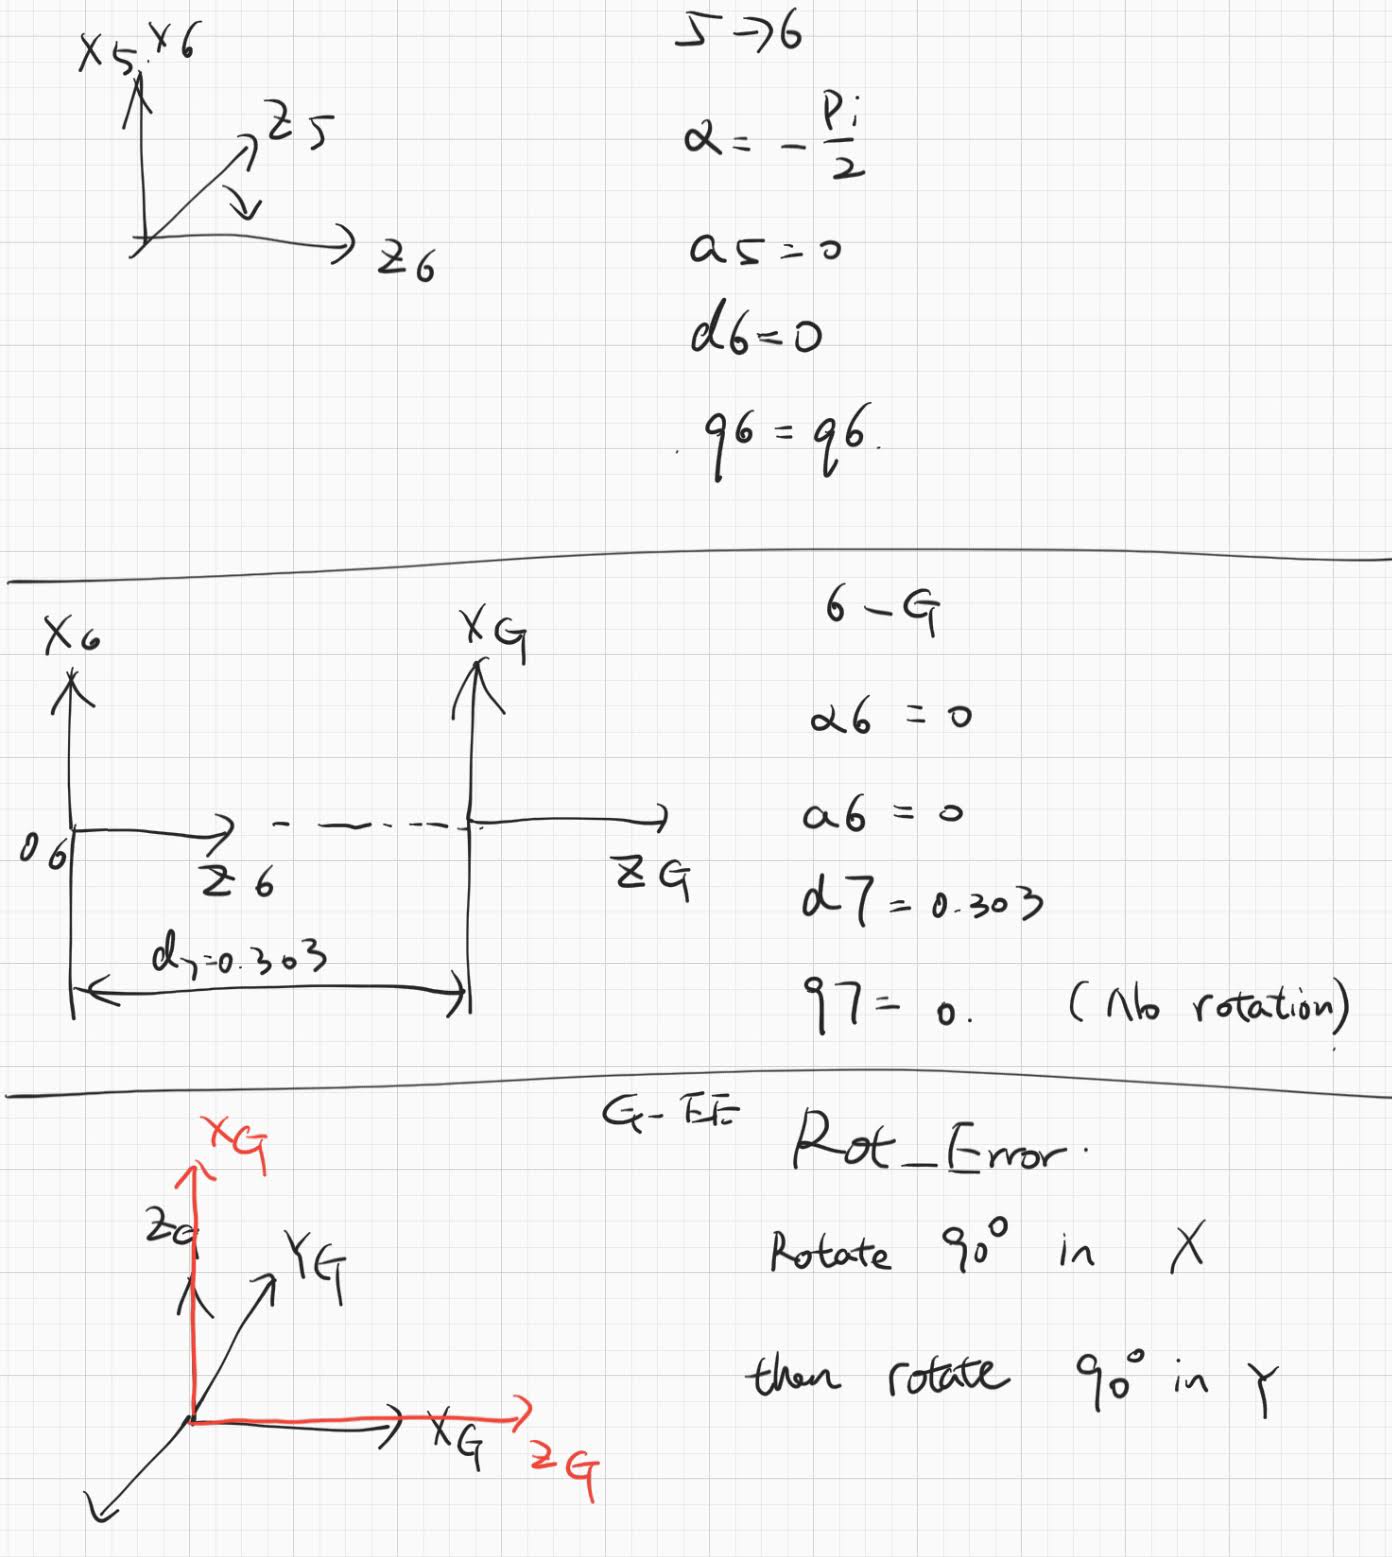 X5, X6
Z5
Z6
5 → 6
α = - Pi/2
a5 = 0
d6 = 0
q6 = q6.
X6
XG
06
Z6
ZG
d7=0.303
6 - G
α6 = 0
a6 = 0
d7 = 0.303
q7 = 0. (No rotation)
G - EE
Rot_Error.
XG
ZG
YG
XG
ZG
Rotate 90° in X
then rotate 90° in Y